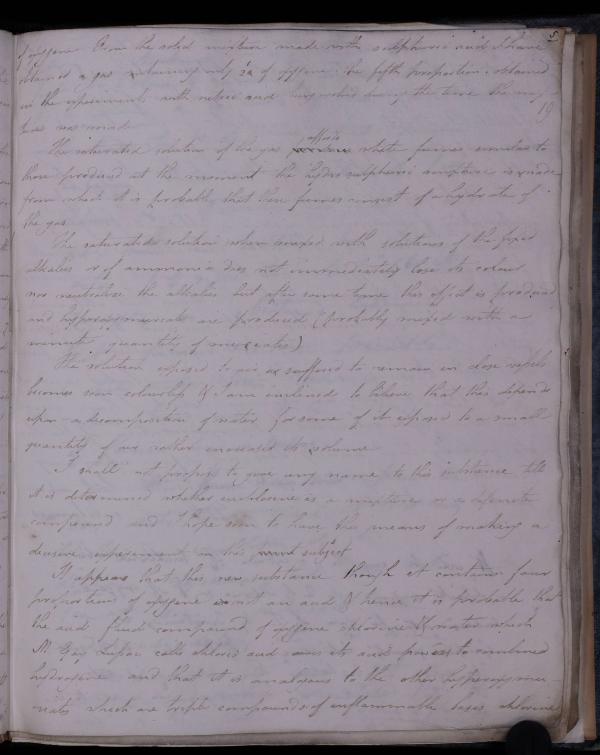 5
of oxygene. From the solid mixture made with sulphuric acid I have
obtained a gas containing only of oxygene the fifth proportion obtained
in the experiments with nitric acid being during the time the
19
was made
The saturated solution of the gas affords white fumes similar to
those produced at the moment the hydro sulphuric mixture is made
from which it is probable that these fumes consist of a hydrate of
the gas.
The saturated solution when mixed with solutions of the fixed
alkalies or of ammonia does not immediately lose its colour
nor neutralize the alkalies but after some time this effect is produced
and are produced (probably mixed with a
minute quantity of muriates)
The solution exposed to air or suffered to remain in close vessels
becomes soon colourless & I am inclined to believe that this depends
upon a decomposition of water for some of it exposed to a small
quantity of air rather increased its volume
I shall not propose to give any name to this substance till
it is determined whether euchlorine is a mixture or a definite
compound and I hope soon to have the means of making a
decisive experiment on this subject
It appears that this new substance though it contains four
proportions of oxygene is not an acid & hence it is probable that
the acid fluid compound of oxygene chlorine & water which
M. Gay Lussac calls chloric acid owes its acid powers to combined
hydrogene and that it is analogous to the other hyperoxymu-
riates which are triple compounds of inflammable bases chlorine